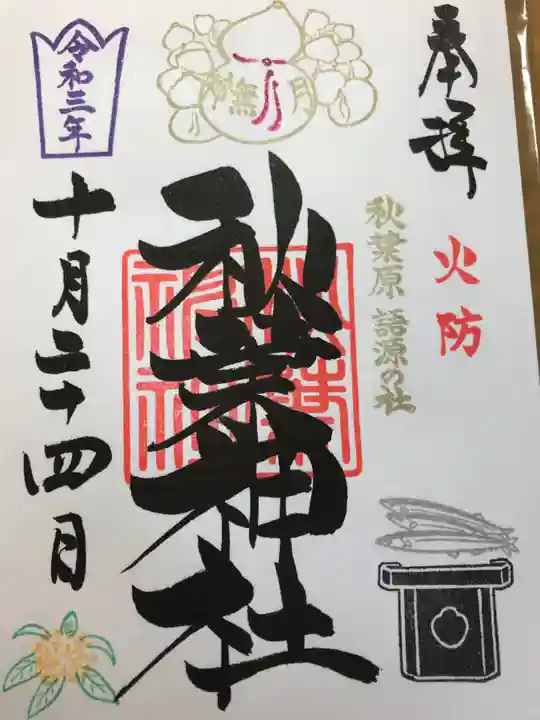 奉拝
火防
秋葉原 語源の社
神無月
秋葉神社
令和三年
十月二十四日